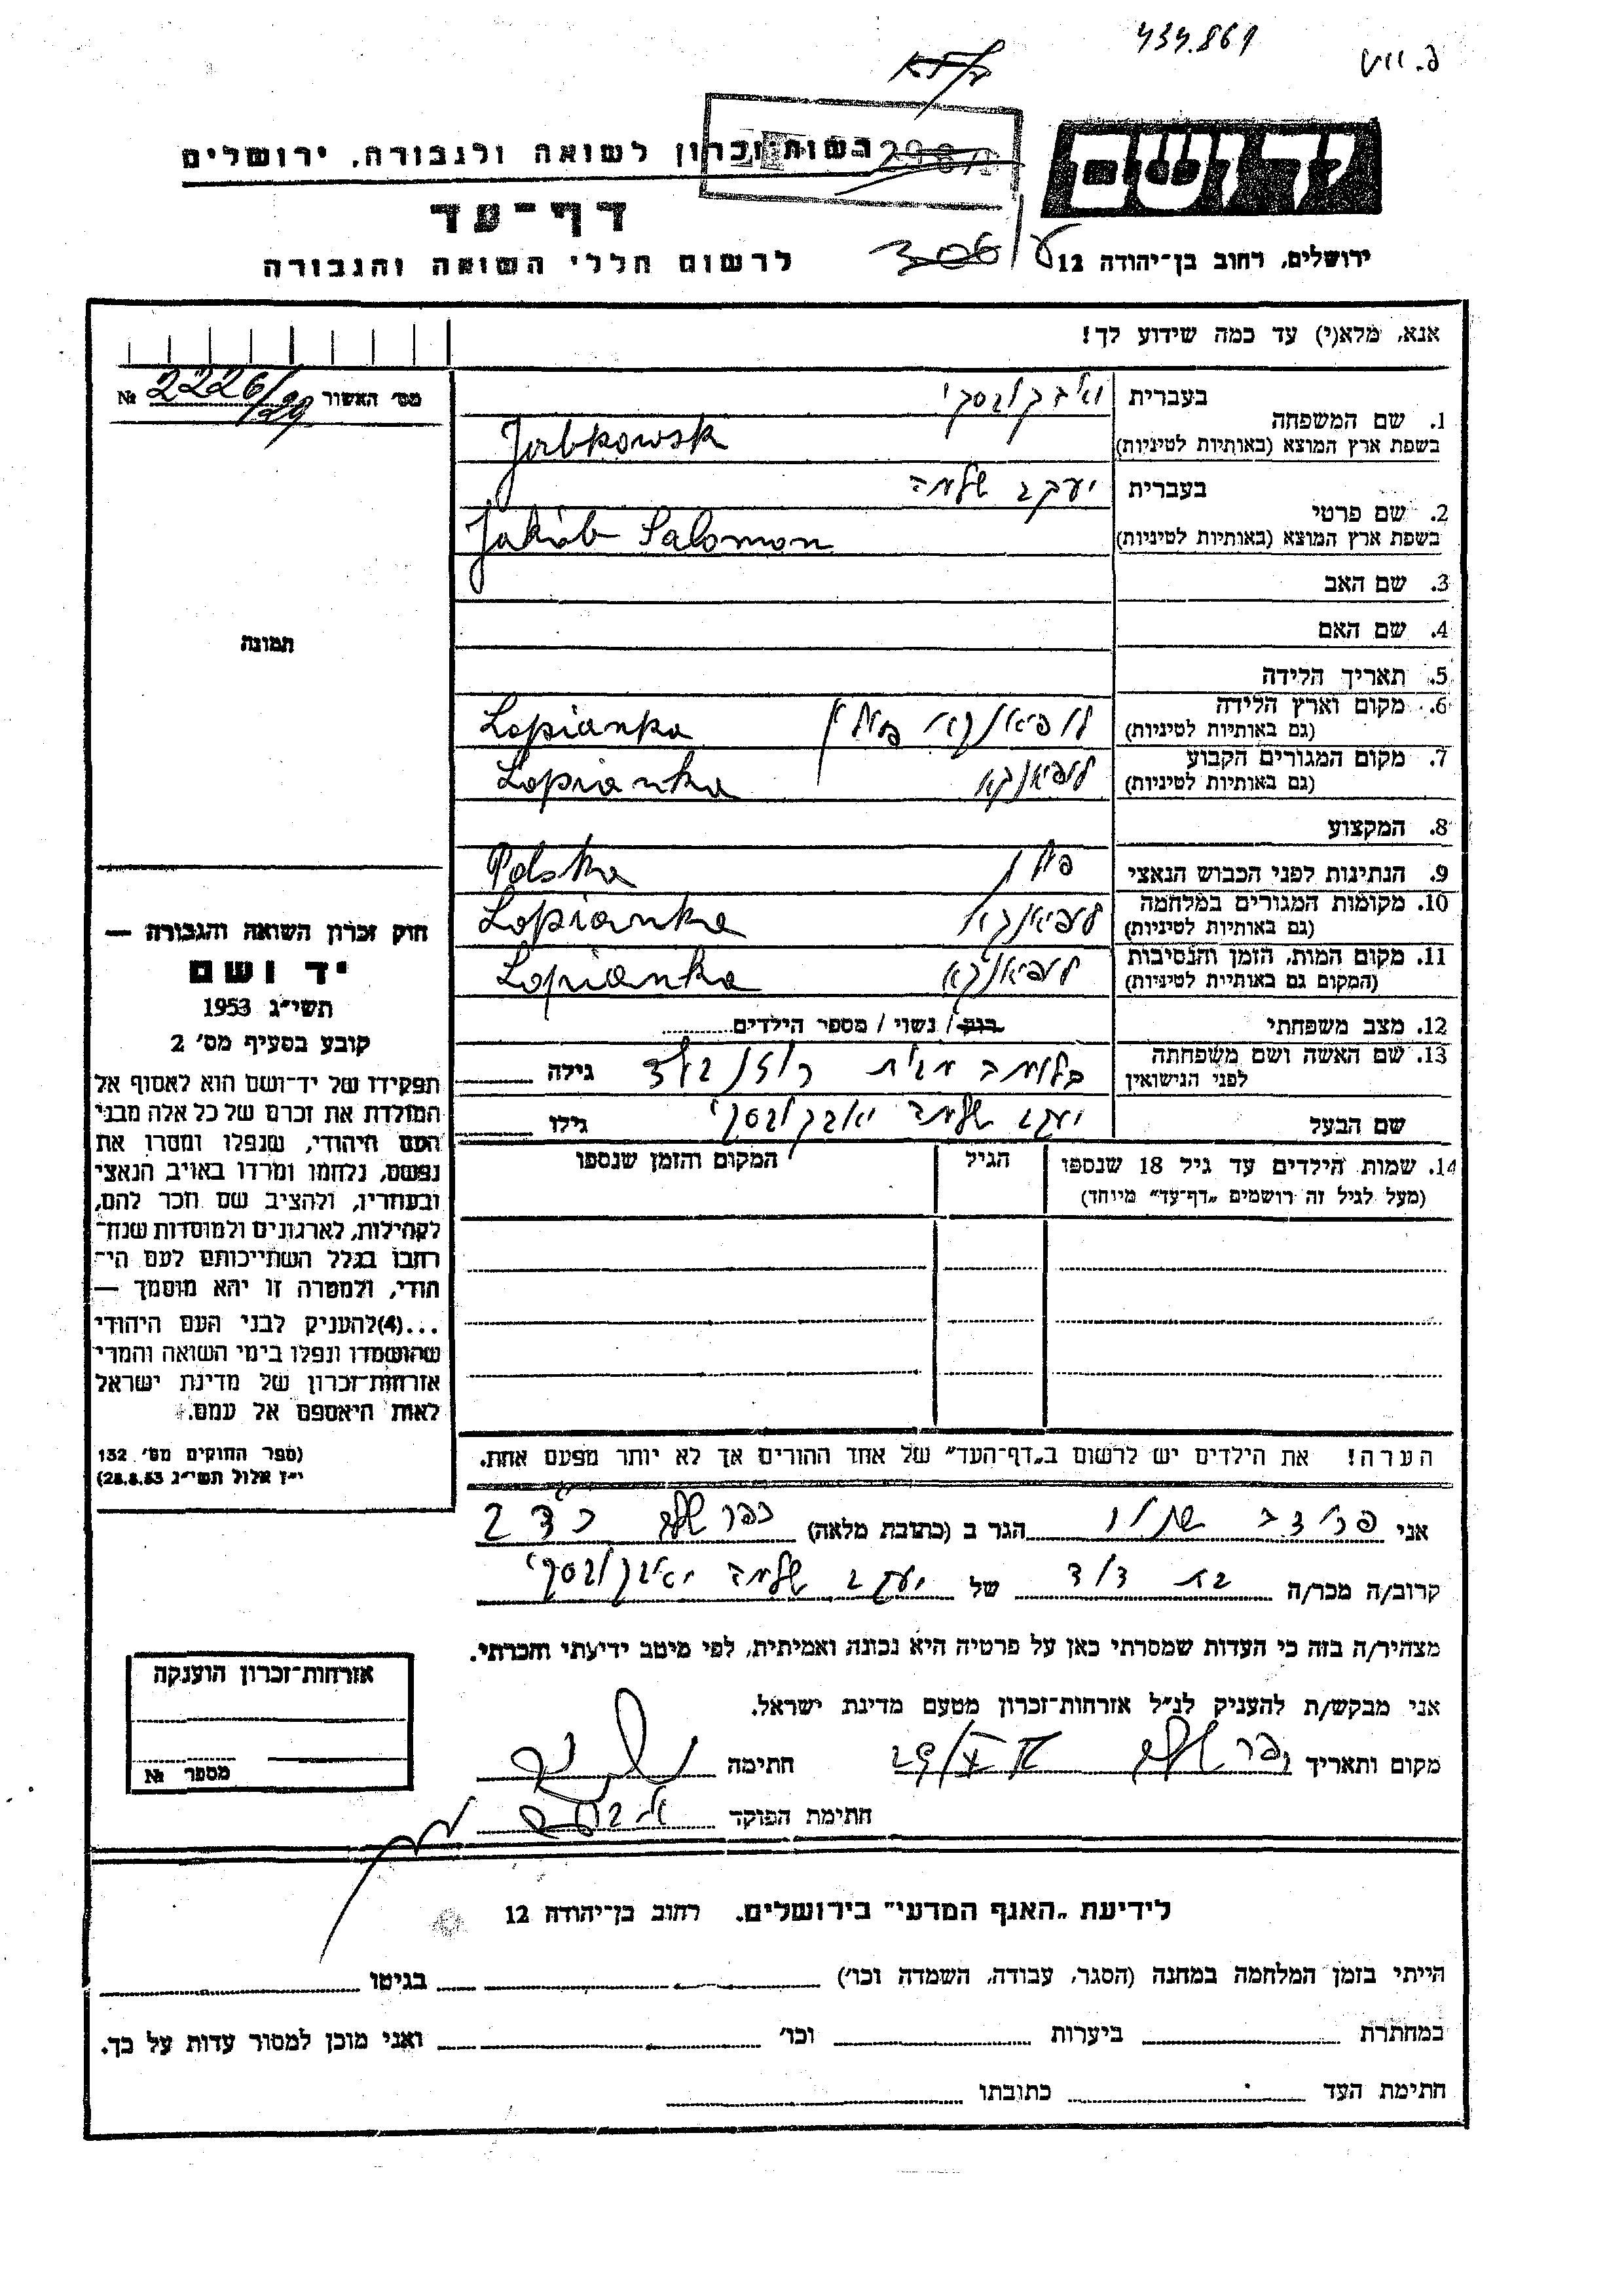 434.869
ידושם
רשות זכרון לשואה ולגבורה, ירושלים
דף־עד
לרשום חללי השואה והגבורה
ירושלים, רחוב בן־יהודה 12
אנא, מלא(י) עד כמה שידוע לך!
מס׳ האשור 2226/29 №
1. שם המשפחה
בעברית יאבקובסקי
בשפת ארץ המוצא (באותיות לטיניות) Jabkowsk
2. שם פרטי
בעברית יעקב שלמה
בשפת ארץ המוצא (באותיות לטיניות) Jakób Salomon
3. שם האב
4. שם האם
5. תאריך הלידה
6. מקום וארץ הלידה
(גם באותיות לטיניות) לופיאנקא פולין Lopianka
7. מקום המגורים הקבוע
(גם באותיות לטיניות) לופיאנקא Lopianka
8. המקצוע
9. הנתינות לפני הכבוש הנאצי פולין Polska
10. מקומות המגורים במלחמה
(גם באותיות לטיניות) לופיאנקא Lopianka
11. מקום המות, הזמן והנסיבות
(המקום גם באותיית לטיניות) לופיאנקא Lopianka
12. מצב משפחתי רווק / נשוי / מספר הילדים
13. שם האשה ושם משפחתה
לפני הנישואין בלומה מבית גילה
שם הבעל יעקב שלמה יאבקובסקי גילו
14. שמות הילדים עד גיל 18 שנספו
(מעל לגיל זה רושמים „דף־עד״ מיוחד)
הגיל
המקום והזמן שנספו
הערה! את הילדים יש לרשום ב„דף־העד״ של אחד ההורים אך לא יותר מפעם אחת.
תמונה
חוק זכרון השואה והגבורה —
יד ושם
תשי״ג 1953
קובע בסעיף מס׳ 2
תפקידו של יד־ושם הוא לאסוף אל
המולדת את זכרם של כל אלה מבני
העם היהודי, שנפלו ומסרו את
נפשם, נלחמו ומרדו באויב הנאצי
ובעוזריו, ולהציב שם וזכר להם,
לקהילות, לארגונים ולמוסדות שנח־
רבו בגלל השתייכותם לעם הי־
הודי, ולמטרה זו יהא מוסמך —
...(4)להעניק לבני העם היהודי
שהושמדו ונפלו בימי השואה והמרי
אזרחות־זכרון של מדינת ישראל
לאות היאספם אל עמם.
(ספר החוקים מס׳ 132
י״ז אלול תשי״ג 28.8.53)
אני הגר ב (כתובת מלאה) כפר שלם
קרוב/ה מכר/ה בת דוד של יעקב שלמה יאבקובסקי
מצהיר/ה בזה כי העדות שמסרתי כאן על פרטיה היא נכונה ואמיתית, לפי מיטב ידיעתי והכרתי.
אני מבקש/ת להעניק לנ״ל אזרחות־זכרון מטעם מדינת ישראל.
מקום ותאריך כפר שלם חתימה
חתימת הפוקד
אזרחות־זכרון הוענקה
מספר №
לידיעת „האגף המדעי״ בירושלים. רחוב בן־יהודה 12
הייתי בזמן המלחמה במחנה (הסגר, עבודה, השמדה וכו׳) בגיטו
במחתרת ביערות וכו׳ ואני מוכן למסור עדות על כך.
חתימת העד כתובתו